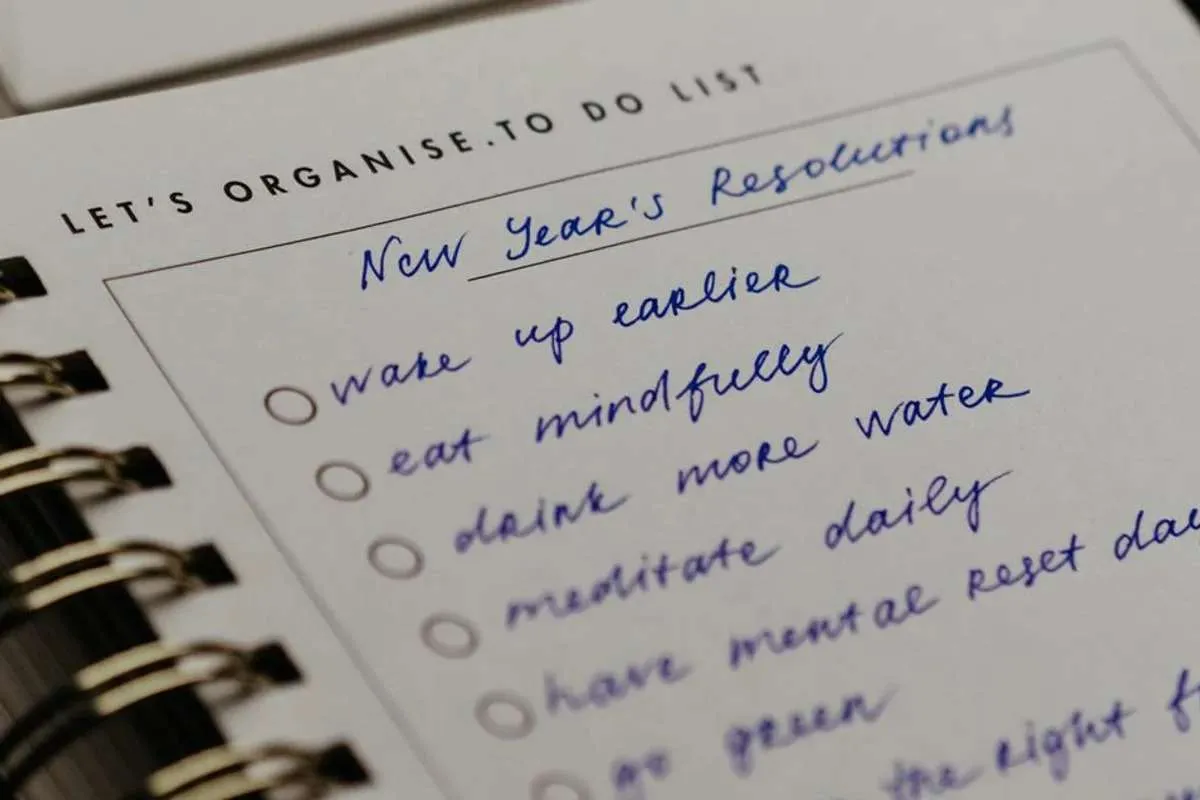 LET'S ORGANISE.TO DO LIST
New Year's Resolutions
wake up earlier
eat mindfully
drink more water
meditate daily
have mental reset
go green
the right